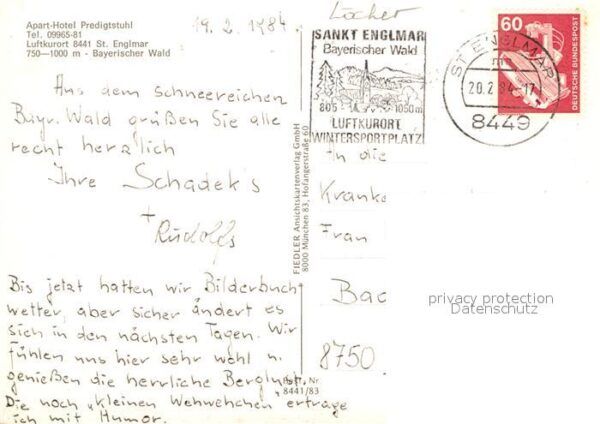 Apart-Hotel Predigtstuhl
Tel. 09965-81
Luftkurort 8441 St. Englmar
750—1000 m - Bayerischer Wald
19. 2. 1984.
Locher
SANKT ENGLMAR
Bayerischer Wald
805 1050m
LUFTKURORT
WINTERSPORTPLATZ
ST ENGLMAR
m
20.2.84-17
8449
60
DEUTSCHE BUNDESPOST
Aus dem schneereichen
Bayr. Wald grüßen Sie alle
recht herzlich
Ihre Schadek's
+
Rudolfs
Bis jetzt hatten wir Bilderbuch
wetter, aber sicher ändert es
sich in den nächsten Tagen. Wir
fühlen uns hier sehr wohl u.
genießen die herrliche Bergluft.
Die noch "kleinen Wehwehchen ertrage
ich mit Humor.
FIEDLER Ansichtskartenverlag GmbH
8000 München 83, Hofangerstraße 60
Best. Nr
8441/83
An die
Kranke
Frau
Bad
8750
privacy protection
Datenschutz